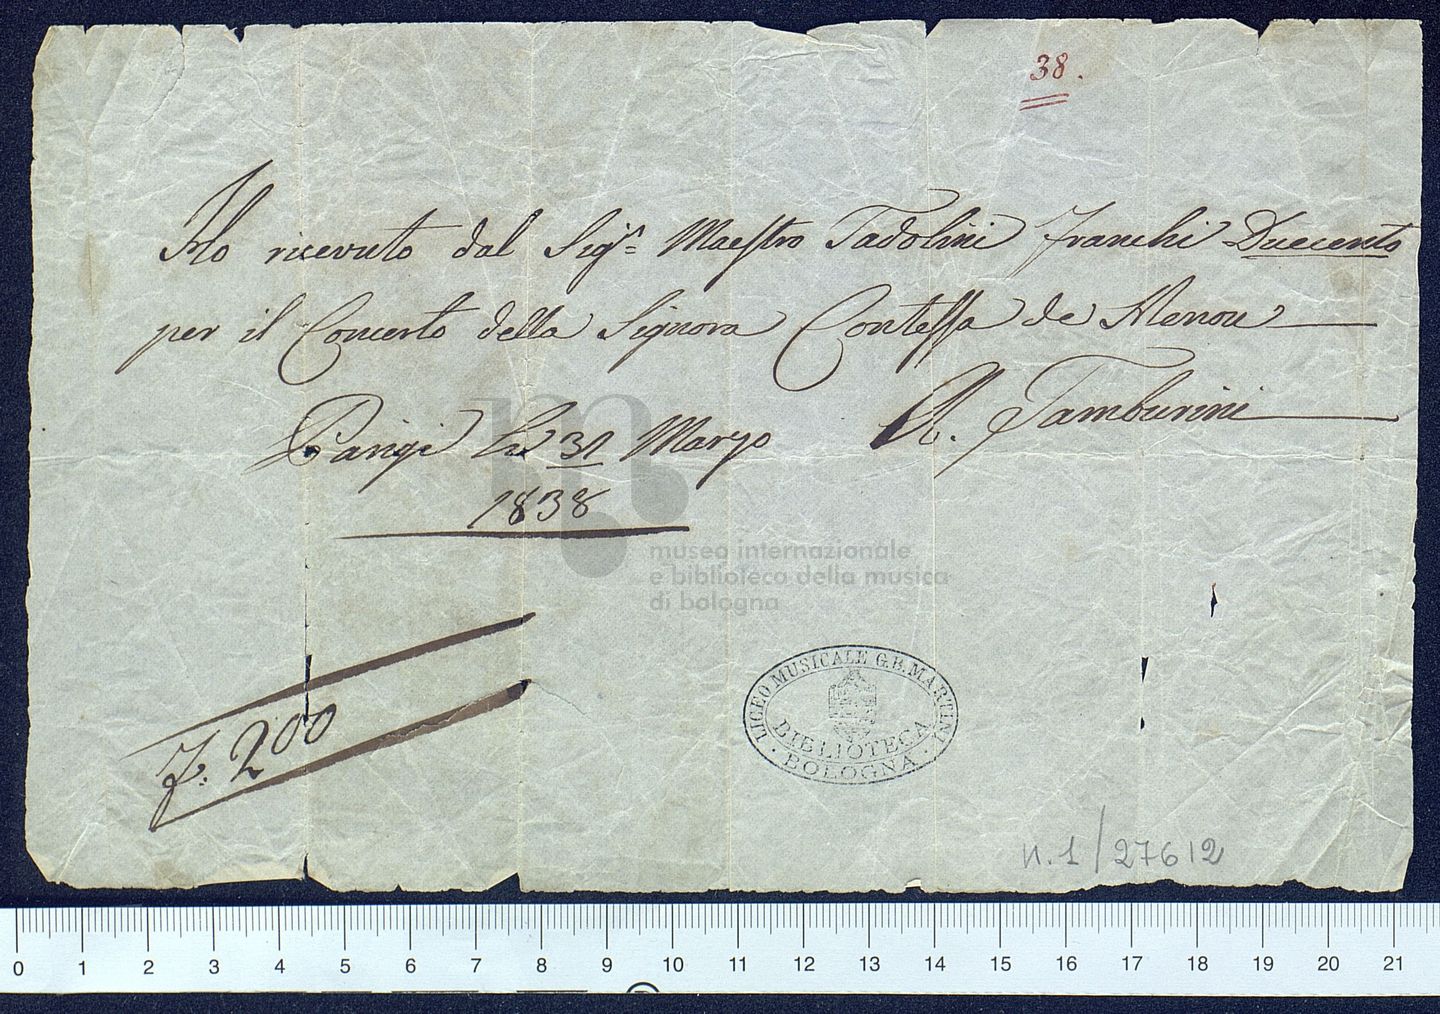 38.
Ho ricevuto dal Sig.r Maestro Tadolini Franchi Duecento
per il Concerto della Signora Contessa de Menou
Parigi li 31 Marzo
A. Tamburini
1838
museo internazionale
e biblioteca della musica
di bologna
F. 200
LICEO MUSICALE G.B. MARTINI
BIBLIOTECA
BOLOGNA
n. 1/27612
0 1 2 3 4 5 6 7 8 9 10 11 12 13 14 15 16 17 18 19 20 21